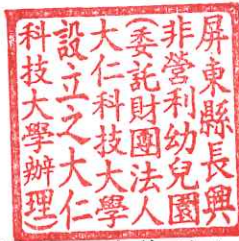 屏東縣長興
非營利幼兒園
(委託財團法人
大仁科技大學
設立之大仁
科技大學辦理)